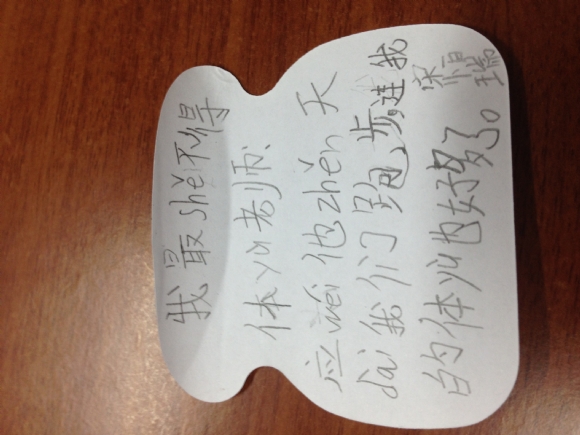 我最shě不得
体yù老师.
应wèi他zhěn天
dài我们跑步,连我
的体yù也好多了。
宋恒瑞